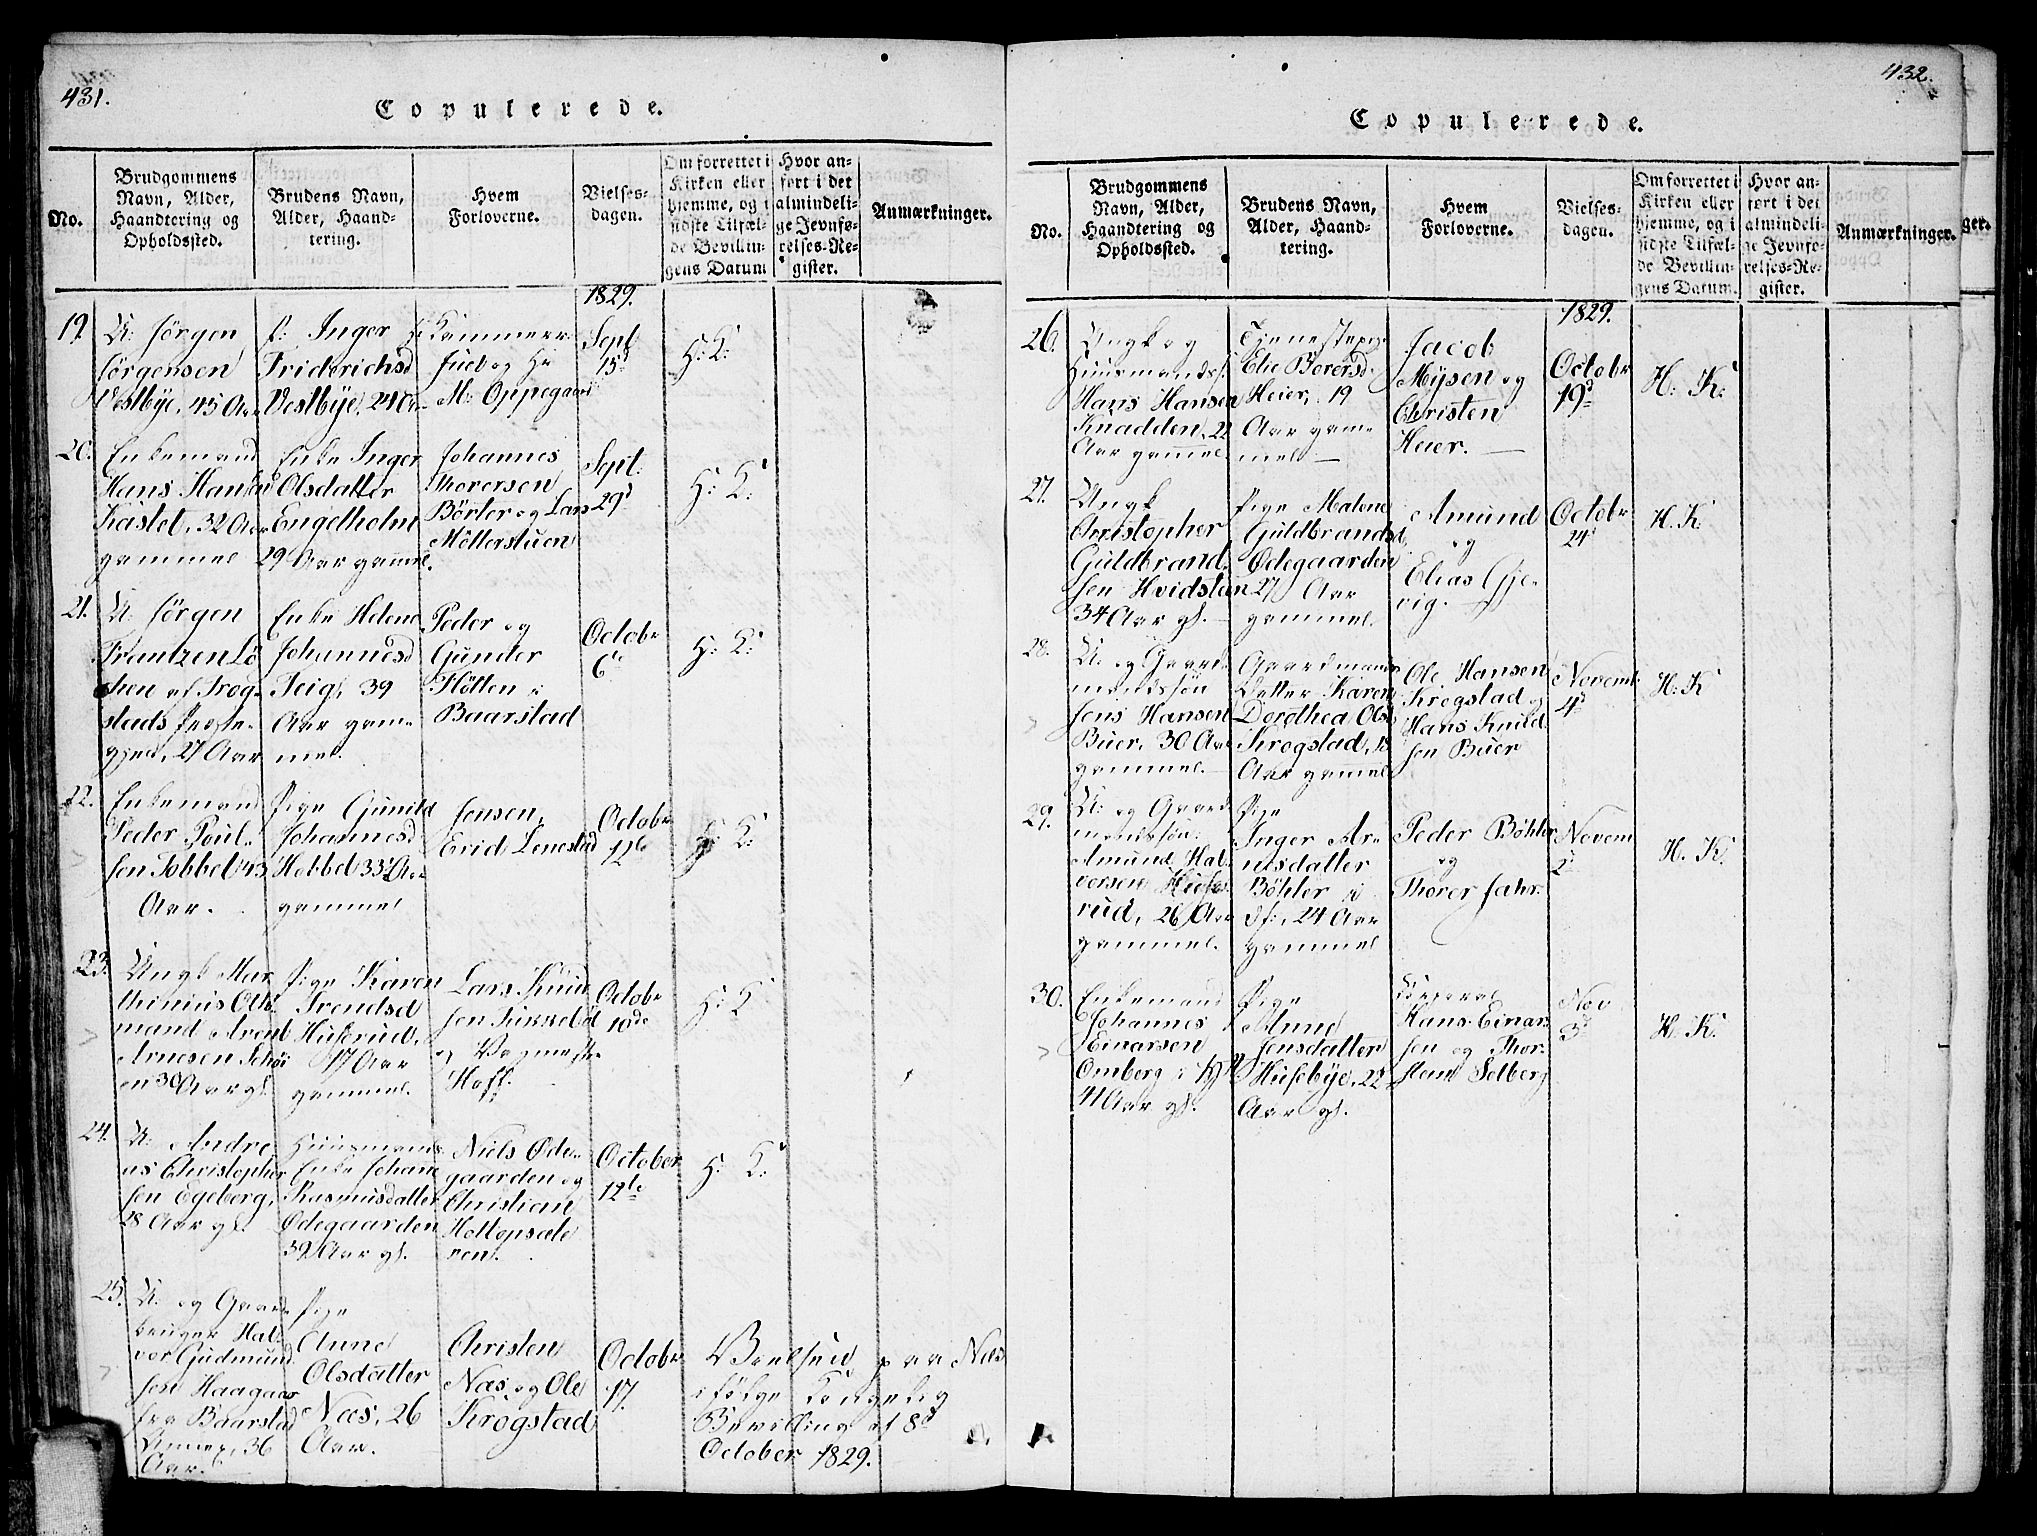 431.
Copulerede.
No.
Brudgommens
Navn, Alder,
Haandtering og
Opholdssted.
Brudens Navn,
Alder, Haand-
tering.
Hvem
Forloverne.
Vielses-
dagen.
Om forrettet i
Kirken eller
hjemme, og i
sidste Tilfæl-
de Bevillin-
gens Datum
Hvor an-
ført i det
almindeli-
ge Jevnfø-
relses-Re-
gister.
Anmærkninger.
1829.
19.
U: Jörgen
Jörgensen
Vestbye, 45 Aar
P: Inger
Friderichsd
Vestbye, 24 Aar
Kammerr
Juel og Hr
M: Oppegaard
Sept
15d
H: K:
20.
Enkemand
Hans Hansen
Kastet, 32 Aar
gammel
Enke Inger
Olsdatter
Engelholm
29 Aar gamel.
Johannes
Thoversen
Börter og Lars
Möllerstuen
Sept:
29d
H: K:
21.
U: Jörgen
Frantzen Lö
chen af Trog-
stads Præste-
gjeld, 27 Aar
Enke Helene
Johannesd
Teig, 39
Aar gam-
mel.
Peder og
Gunder
Flötten i
Baarstad
Octobr
6te
H: K:
22.
Enkemand
Peder Poul-
sen Tobbel 43
Aar.
Pige Gunild
Johannesd
Hobbel 33 Aar
gammel
Jensen,
Erid Lenestad
Octobr
12te
H: K:
23.
Ungk Mar
thinius Olts
mand Arent
Arnesen Schöi
en 30 Aar gl.
Pige Karen
Trendsd
Huserud,
17 Aar
gammel.
Lars Knud
sen
og Vagmester
Hoff.
Octobr
10de
H: K:
24.
U: Andre
as Christopher
sen Egeberg,
28 Aar gl.
Huusmands
Enke Johanne
Rasmusdatter
Ödegaarden
39 Aar gl.
Niels Öde-
gaarden og
Christian
Holtopsæte
ren.
October
12te
H: K:
25.
U: og Gaard
bruger Hal-
vor Gudmund
sen Haagaas
fra Baarstad
Annex, 36
Aar.
Pige
Anne
Olsdatter
Næs, 26
Aar.
Christen
Næs og Ole
Krogstad
Octobr
17.
Vielsen paa Næs
ifölge Kongelig
Bevilling af 8d
October 1829.
432.
Copulerede.
No.
Brudgommens
Navn, Alder,
Haandtering og
Opholdssted.
Brudens Navn,
Alder, Haand-
tering.
Hvem
Forloverne.
Vielses-
dagen.
Om forrettet i
Kirken eller
hjemme, og i
sidste Tilfæl-
de Bevillin-
gens Datum.
Hvor an-
ført i det
almindeli-
ge Jevnfø-
relses-Re-
gister.
Anmærkninger.
ger.
1829.
26.
Ungk og
Huusmands:
Hans Hansen
Knadden, 22
Aar gamel
Tjenestepige
Elie Boversd.
Heier, 19
Aar gam-
mel
Jacob
Mysen og
Christen
Heier.
Octobr
19d
H: K:
27.
Ungk
Christopher
Guldbrand
sen Hvidsten
34 Aar gl.
Pige Malene
Guldbrandsd
Ödegaarden
27 Aar
gammel.
Amund
og
Elias Gje-
vig.
Octobr
24d
H. K
28.
U: og Gaard
mandssön
Jens Hansen
Buer, 30 Aar
gammel.
Gaardmands
Datter Karen
Dorothea Ols
Krogstad, 18
Aar gamel
Ole Hansen
Krogstad og
Hans Knud
sen Buer
Novemb
4d
H: K
29.
U: og Gaard
mandssön
Amund Hal-
vorsen
rud, 26 Aar
gammel.
Pige
Inger Ar-
nesdatter
Böhler i
ds:, 24 Aar
gammel
Peder Böhler
og
Thorer Jahr.
Novem
2d
H. K.
30.
Enkemand
Johannes
Einarsen
Omberg i
41 Aar gl.
Pige
Anne
Jensdatter
Husebye, 22
Aar gl.
Corporal
Hans Einar
sen og Thor-
sten Solberg
Nov
3d
H. K.